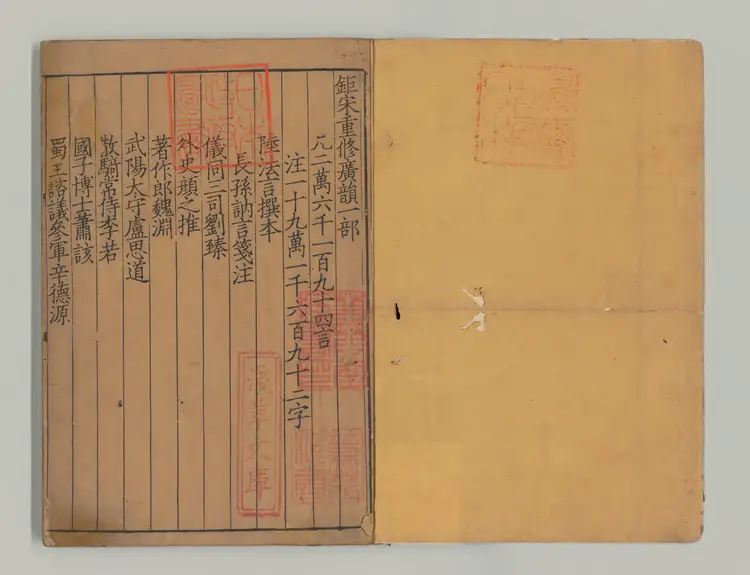 鉅宋重修廣韻一部
凡二萬六千一百九十四言
注一十九萬一千六百九十二字
陸法言撰本
長孫訥言箋注
儀同三司劉臻
外史顏之推
著作郎魏淵
武陽太守盧思道
散騎常侍李若
國子博士蕭該
蜀王諮議參軍辛德源